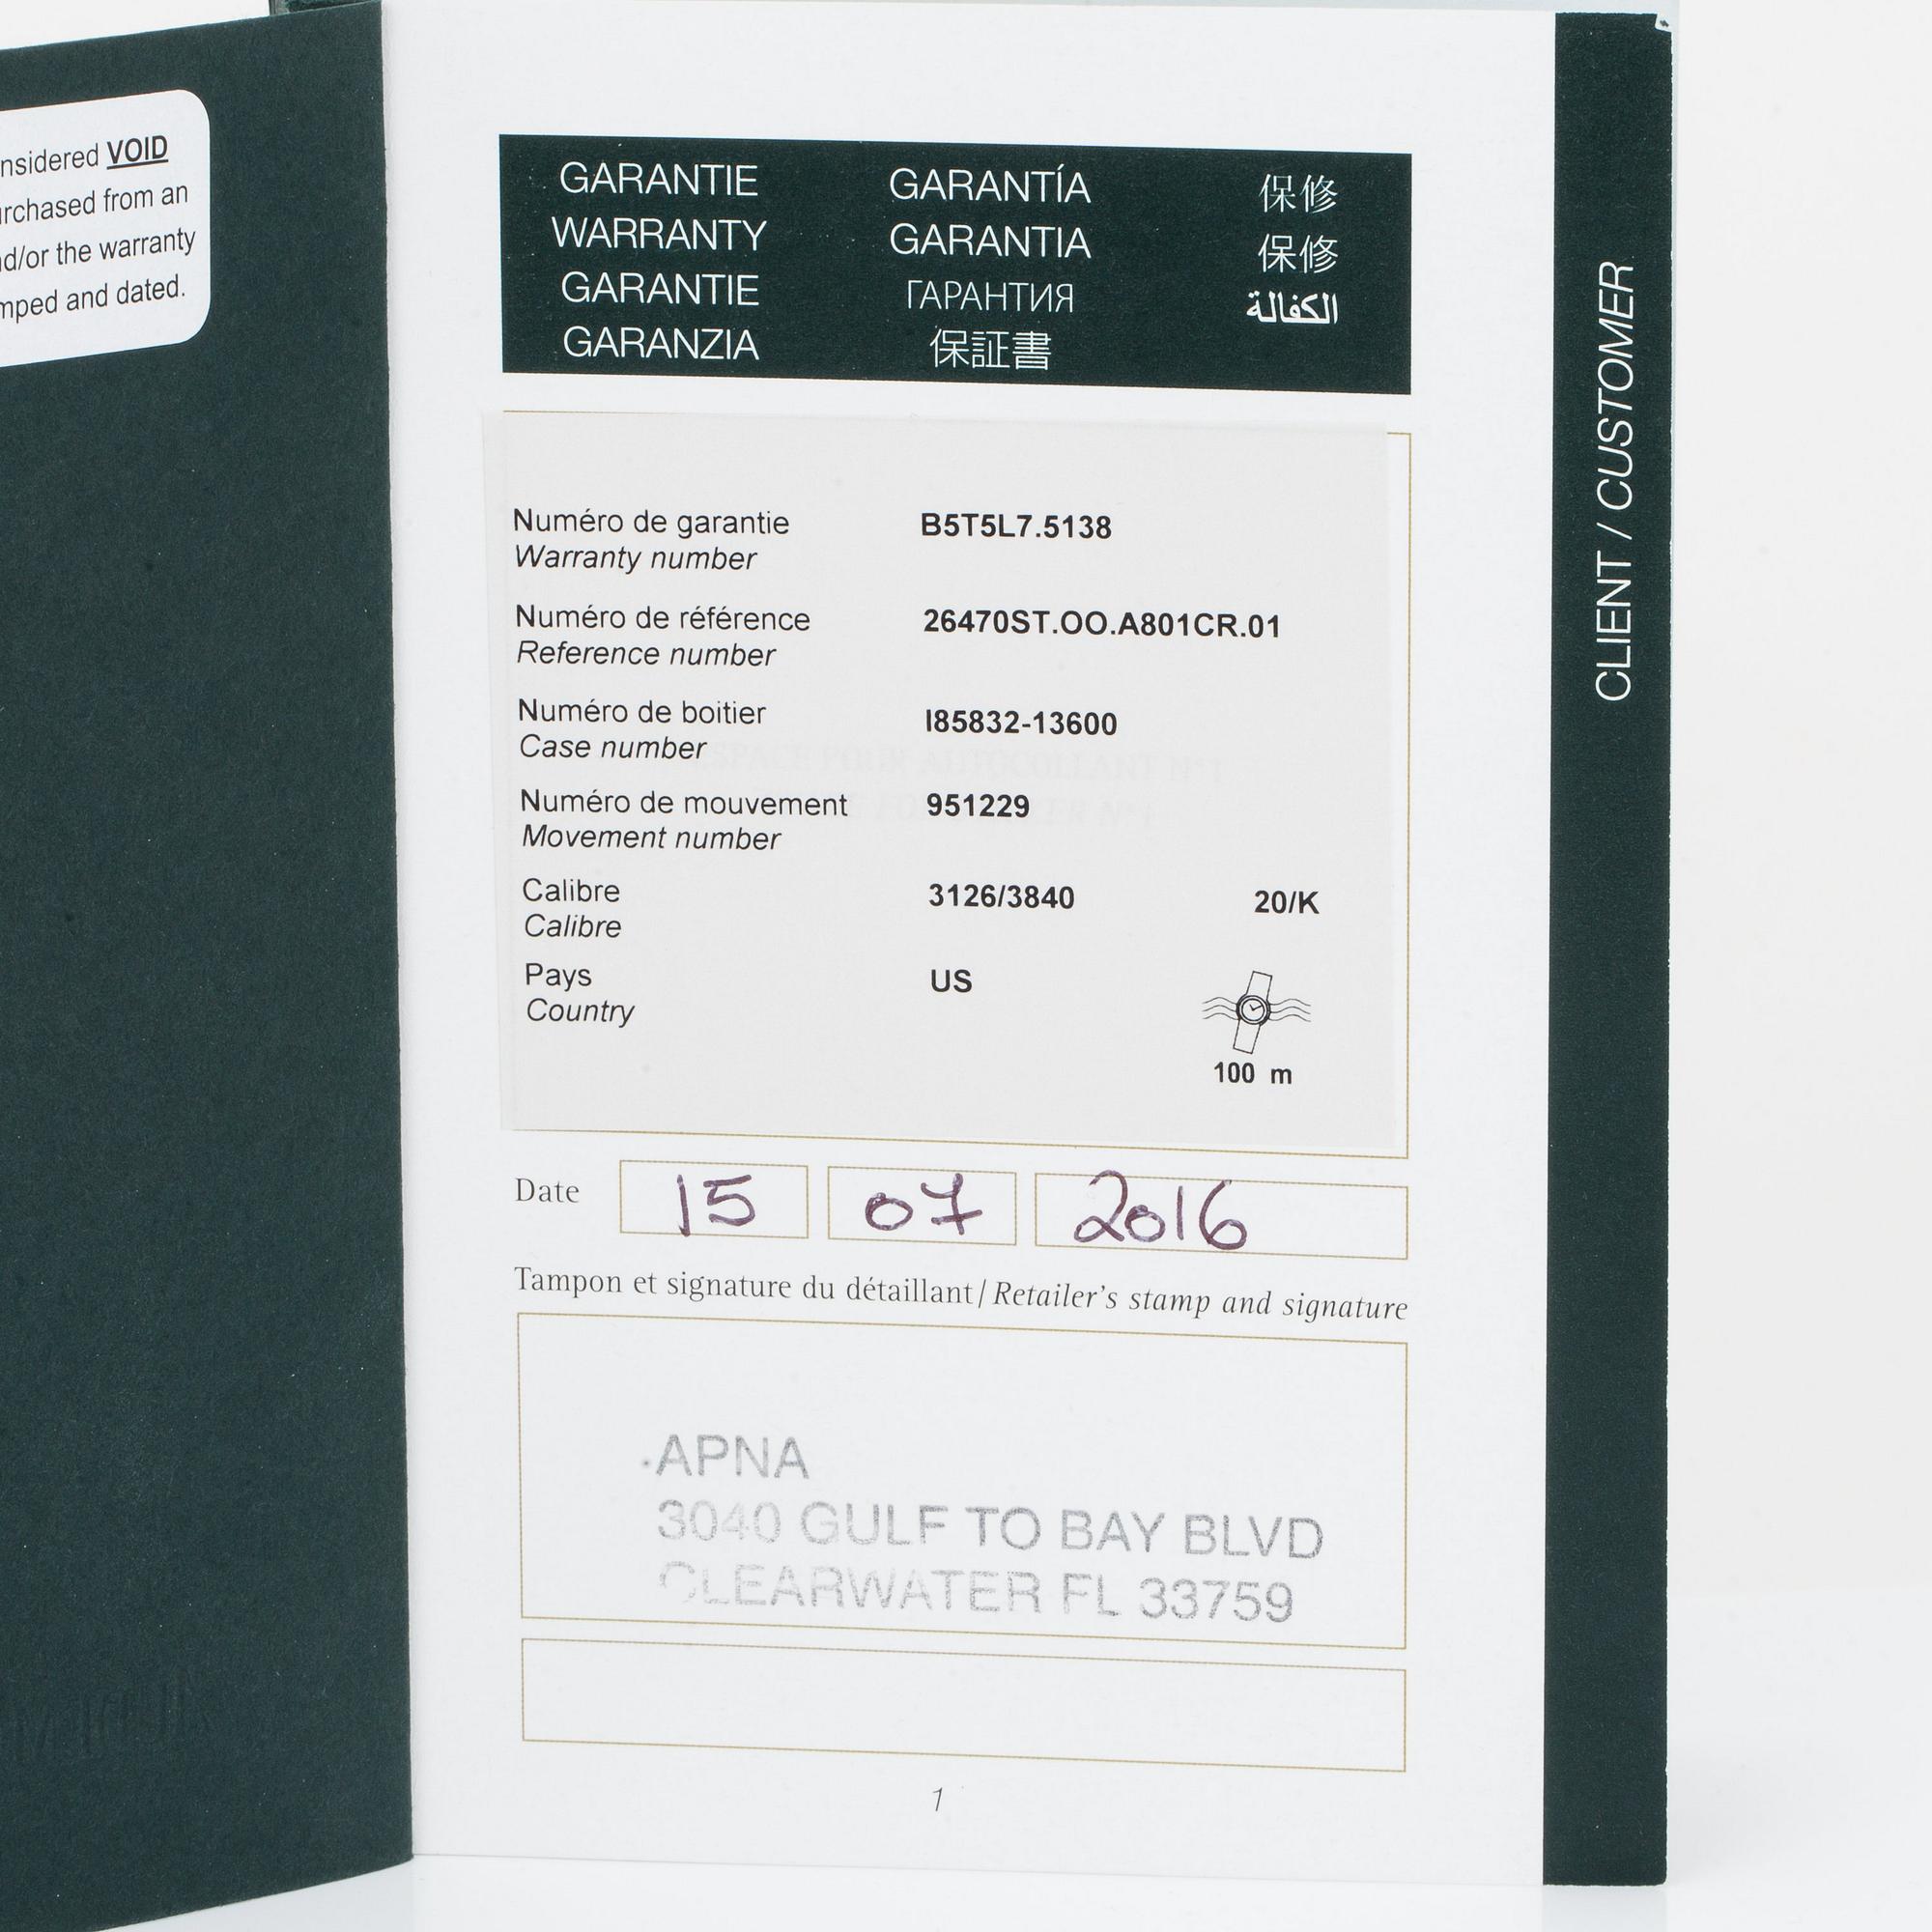 nsidered VOID
urchased from an
nd/or the warranty
mped and dated.
GARANTIE
WARRANTY
GARANTIE
GARANZIA
GARANTÍA
GARANTIA
ГАРАНТИЯ
保証書
保修
保修
الكفالة
CLIENT / CUSTOMER
Numéro de garantie B5T5L7.5138
Warranty number
Numéro de référence 26470ST.OO.A801CR.01
Reference number
Numéro de boitier I85832-13600
Case number
ESPACE POUR AUTOCOLLANT N°1
Numéro de mouvement 951229
Movement number
Calibre 3126/3840 20/K
Calibre
Pays US
Country
100 m
Date 15 07 2016
Tampon et signature du détaillant / Retailer's stamp and signature
APNA
3040 GULF TO BAY BLVD
CLEARWATER FL 33759
1